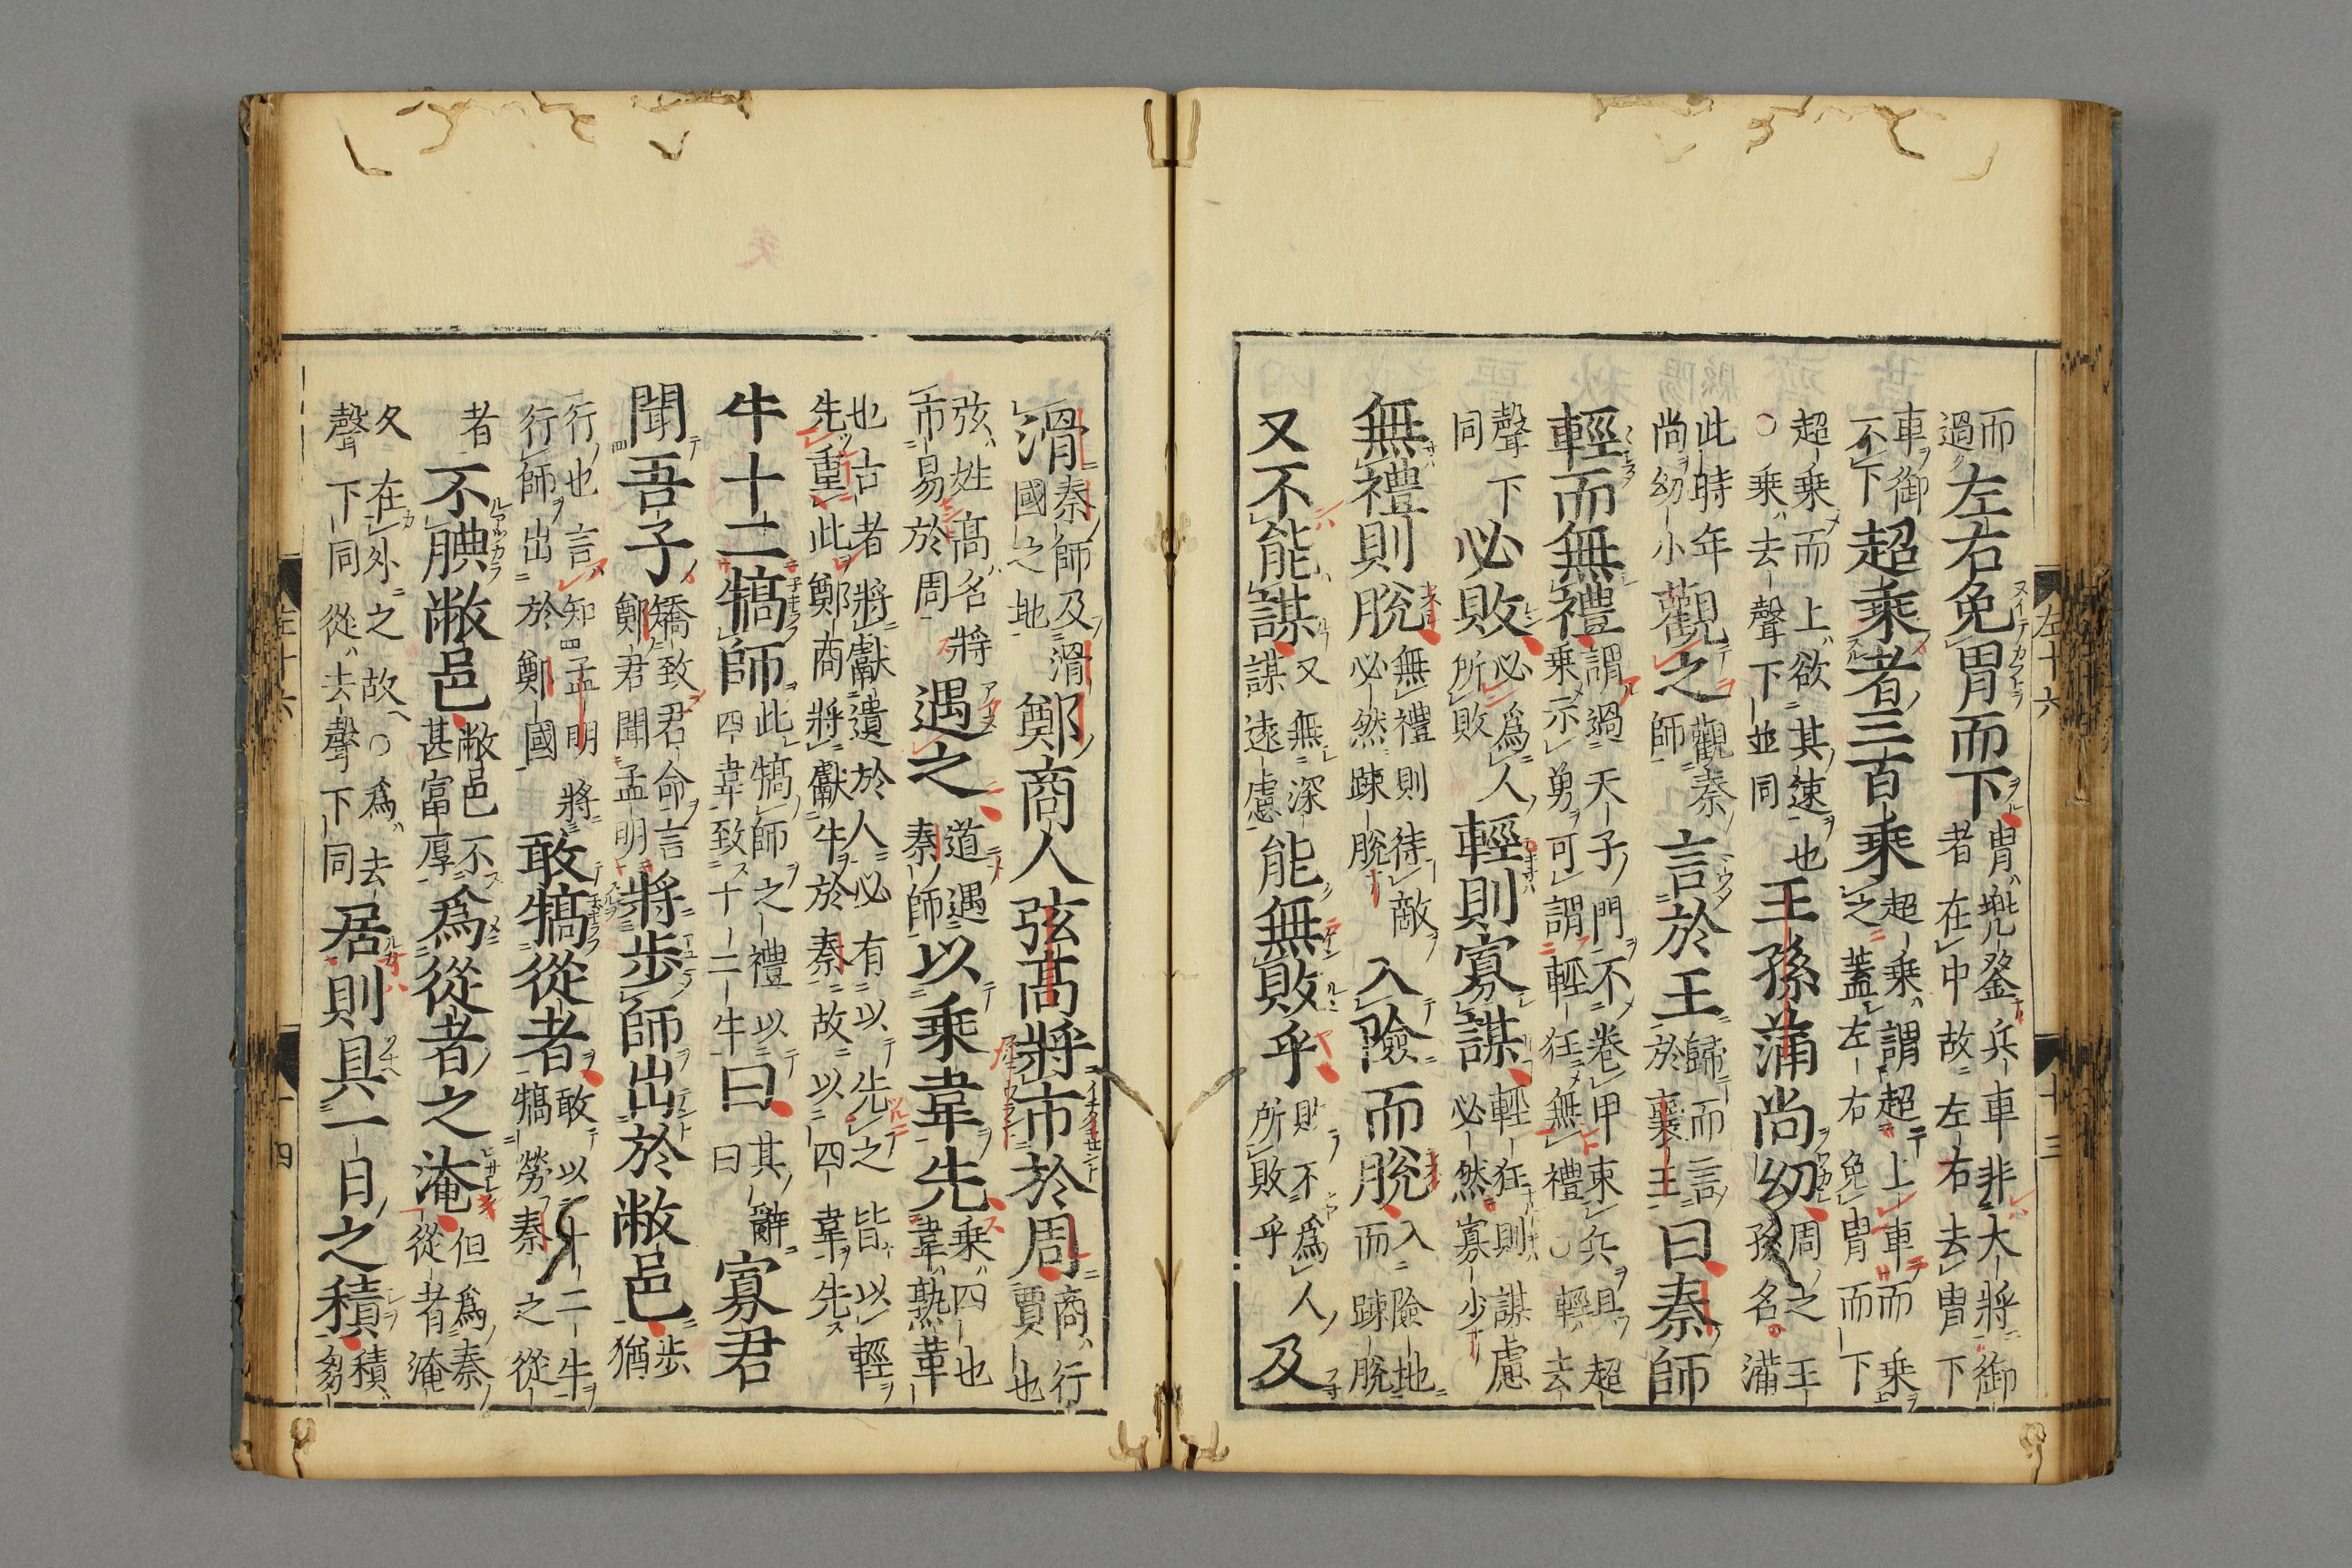 而過左右免冑而下冑兠鍪兵車非大將御者在中故左右去冑下
車御不下超乘者三百乘超乘謂超上車而乘之蓋左右免冑而下
超乘而上欲其速也○乘去聲下並同王孫蒲尚幼周之王孫名蒲
此時年尚幼小觀之觀秦師言於王歸而言於襄王曰秦師
輕而無禮謂過天子門不卷甲束兵具超乘示勇可謂輕狂無禮○輕去
聲下同必敗必爲人所敗輕則寡謀輕狂則謀慮必然寡少
無禮則脫無禮則待敵必然踈脫入險而脫入險地而踈脫
又不能謀又無深謀遠慮能無敗乎敗不爲人所敗乎及
左十六
十三
滑秦師及滑國之地鄭商人弦高將市於周商行賈也
弦姓高名將市易於周遇之道遇秦師以乘韋先乘四也韋熟革
也古者將獻遺於人必有以先之皆以輕先重此鄭商將獻牛於秦故以四韋先
牛十二犒師此犒師之禮以四韋致十二牛曰其辭曰寡君
聞吾子矯致君命言鄭君聞孟明將步師出於敝邑步猶
行也言知孟明將行師出於鄭國敢犒從者敢以十二牛犒勞秦之從
者不腆敝邑敝邑不甚富厚爲從者之淹但爲秦從者淹
久在外之故○爲去聲下同從去聲下同居則具一日之積積芻
左十六
十四